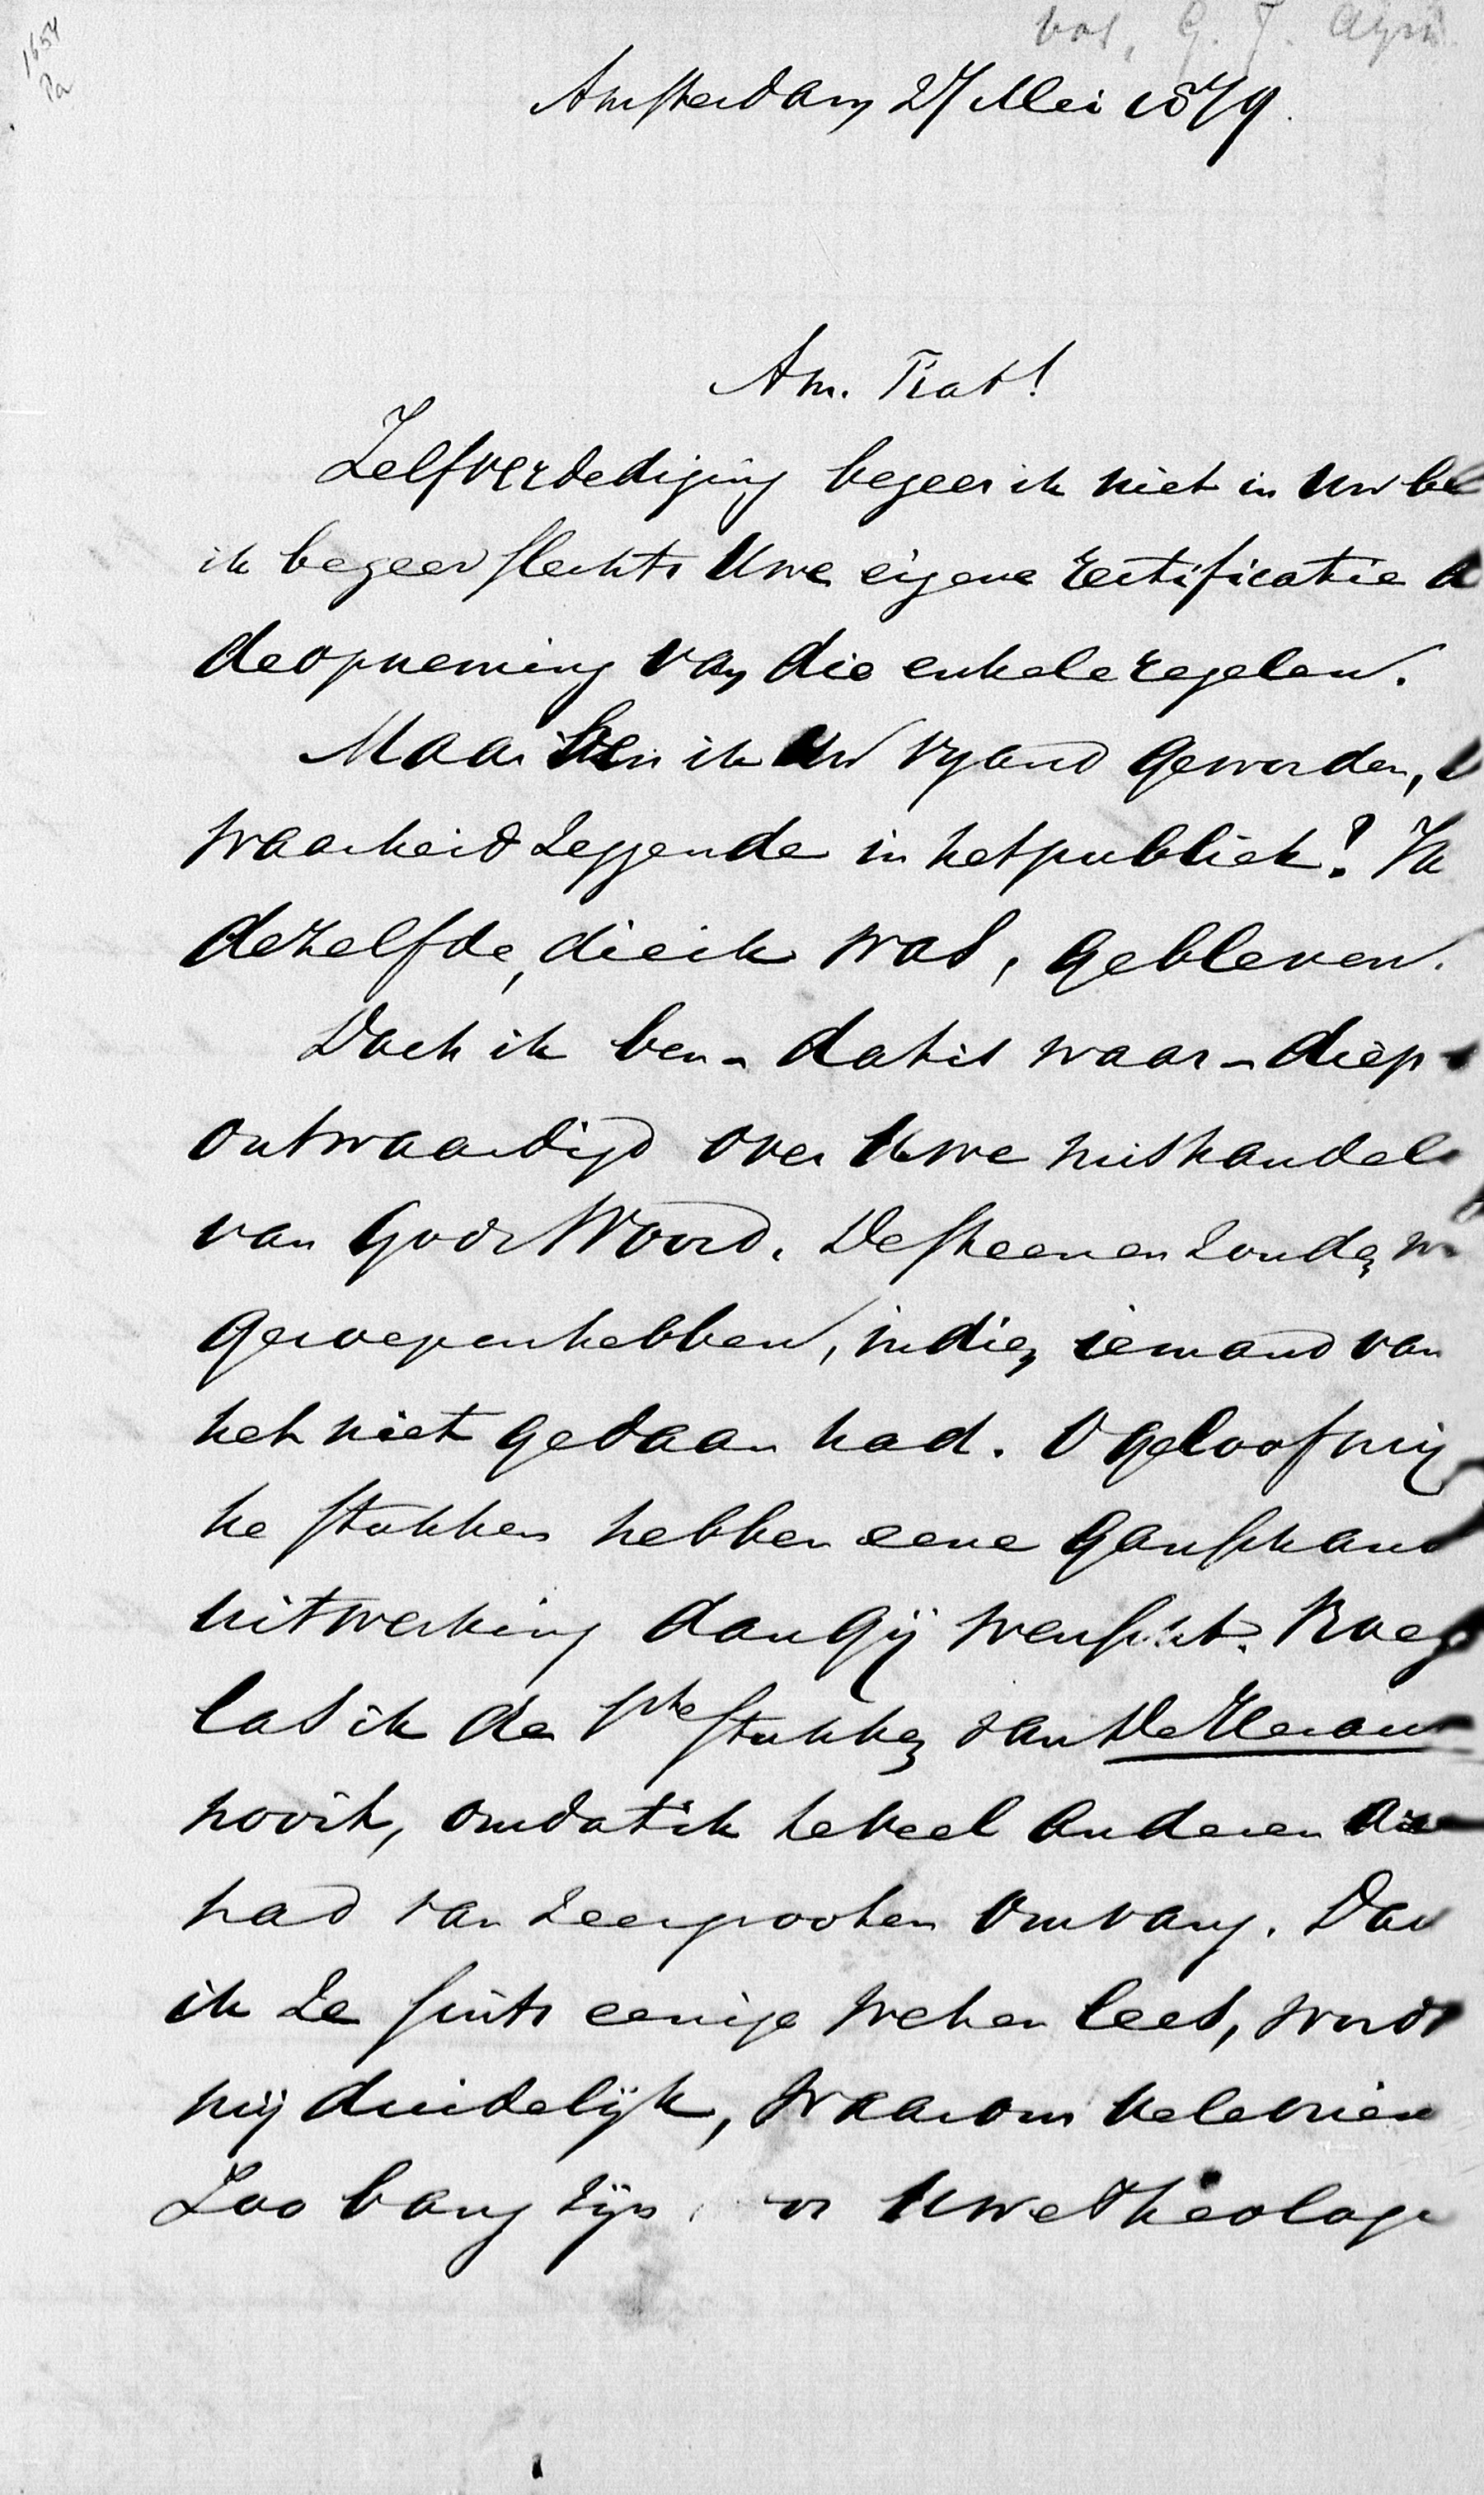 1654
Pa
Vos, G. J. Azn
Amsterdam 27 Mei 1879.
Am. Frat!
Zelfverdediging begeer ik niet in Uw bl
ik begeer slechts Uwe eigene rectificatie
de opneming van die enkele regelen.
Maar ben ik Uw vyand geworden,
waarheid zeggende in het publiek? Ik
dezelfde, die ik was, gebleven.
Doch ik ben - dat is waar - diep
ontwaardigd over Uwe mishandel
van Gods Woord. De steenen zouden
geroepen hebben, indien iemand van
het niet gedaan had. O geloof mij
ke stukken hebben eene gansch and
uitwerking dan gij wenscht. Vroeg
las ik de stukken van De Heraut
nooit, omdat ik te veel anderen
had van zeer grooten omvang. Da
ik ze sints eenige weken lees, word
mij duidelijk, waarom vele vrien
Zoo bang zijn Uwe theologi